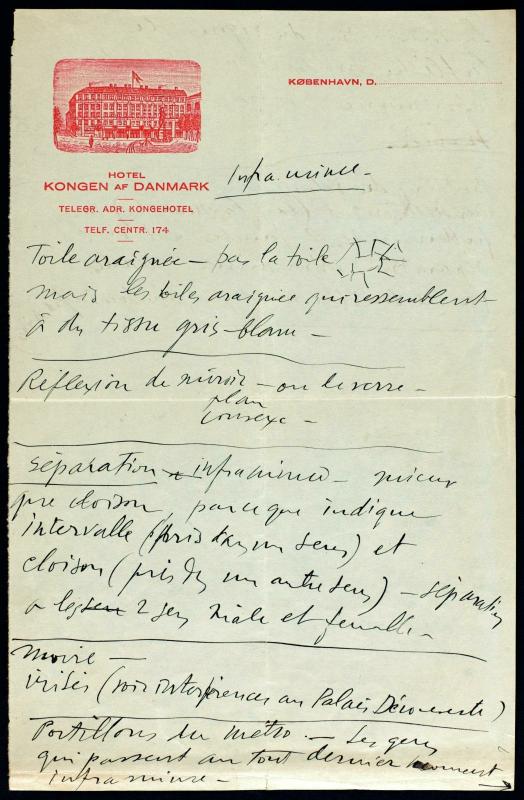 KØBENHAVN, D.
HOTEL
KONGEN AF DANMARK
TELEGR. ADR. KONGEHOTEL
TELF. CENTR. 174
Infra mince –
Toile araignée – pas la toile
mais les toiles araignée qui ressemblent
à du tissu gris-blanc –
Réflexion de miroir – ou de verre –
plan
convexe –
séparation infra mince – mieux
que cloison, parce que indique
intervalle (pris dans un sens) et
cloison (pris ds un autre sens) – séparation
a les sens 2 sens mâle et femelle –
moire –
irisés (voir interférences au Palais Découverte)
Portillons du métro. – Les gens
qui passent au tout dernier moment
infra mince – →